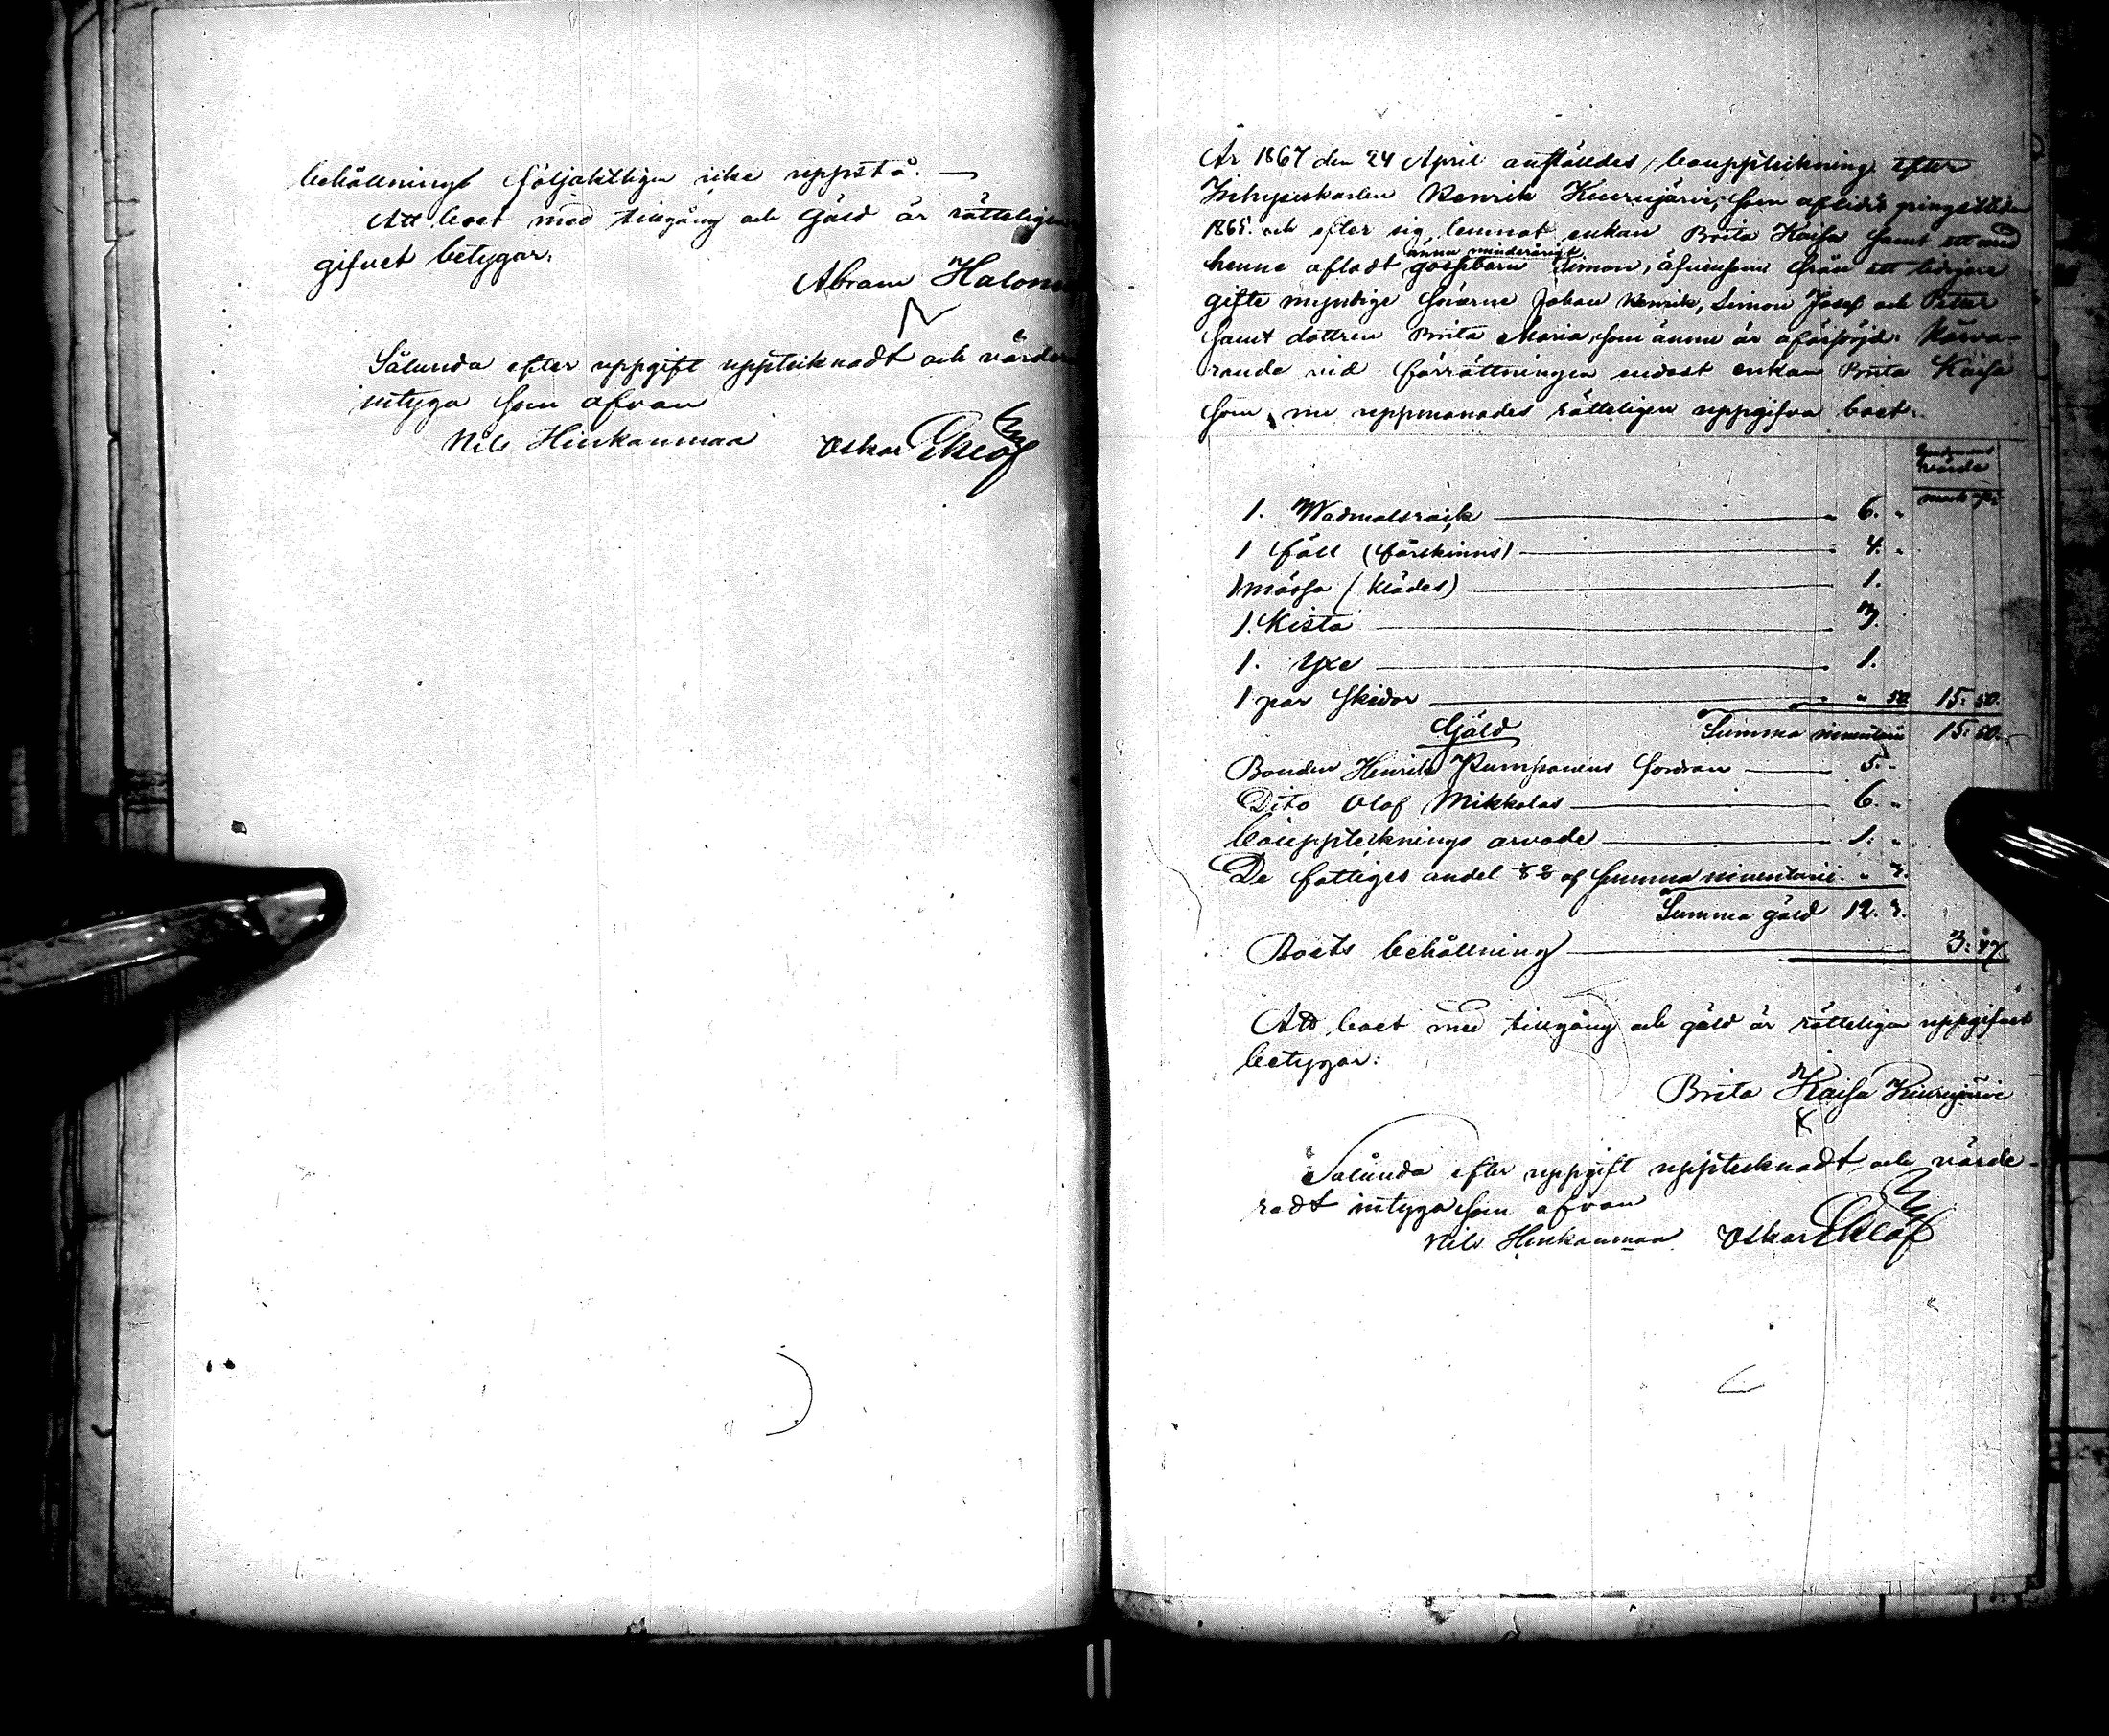 behållning följaktligen icke uppstå. —
Att boet med tillgång och Gäld är rätteligen
gifvet betygar.
Abram Halonen
Sålunda efter uppgift upptecknadt och värder
intyga som ofvan
Nils Hiukanmaa Oskar Ekelöf
År 1867 den 24 April anstäldes bouppteckning efter
Inhyseskarlen Henrik Kiurujärvi, som afledit pingsttiden
1865. och efter sig lemnat enkan Brita Kaisa samt ett med
ännu minderårigt
henne afladt gossebarn Simon, äfvensom från ett tidigare
gifte myndige sönerne Johan Henrik, Simon Josef och Petter
samt dottren Brita Maria, som ännu är oförsörjd. Närva-
rande vid förrättningen endast enkan Brita Kaisa
som nu uppmanades rätteligen uppgifva boet.
värde
mark pi
1. Wadmalsrock — " 6. "
1 fäll (fårskinns) — " 4. "
1 mössa (klädes) — 1.
1. Kista — 3.
1. Yxe — 1.
1 par skidor — " 50 15. 50.
Gäld Summa inventarii 15. 50.
Bonden Henrik Rumpanens fordran — 5. "
Dito Olof Mikkolas — 6. "
bouppteknings arvode — 1. "
De fattiges andel ⅛ % af summa inventarii. " 3.
Summa gäld 12. 3.
Boets behållning — 3. 47.
Att boet med tillgång och gäld är rätteligen uppgifvet
betygar:
Brita Kaisa Kiurujärvi
Sålunda efter uppgift upptecknadt och värde-
radt intyga som ofvan
Nils Hiukanmaa Oskar Ekelöf